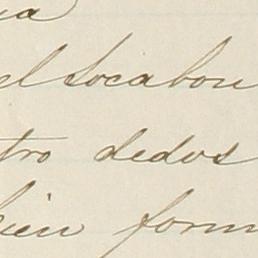 ia
el Socabon
tro dedos
bien form